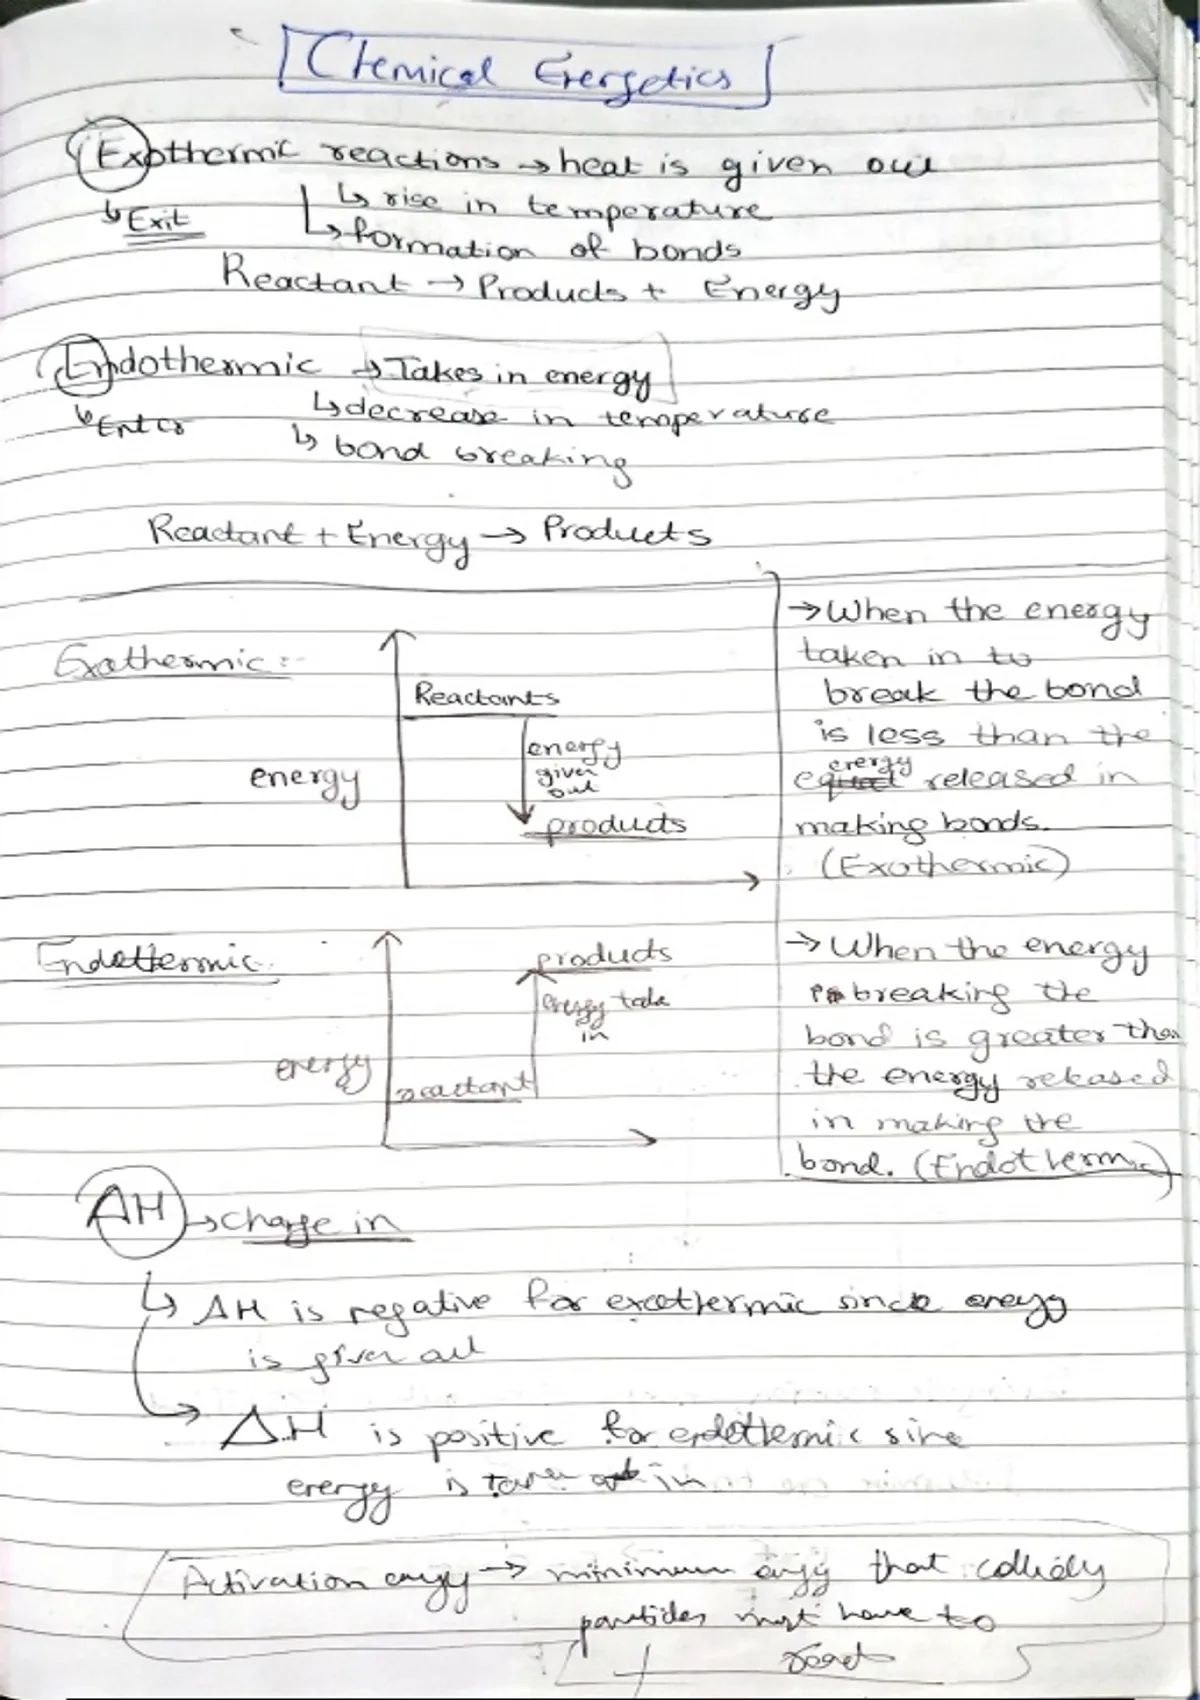 Chemical Energetics
Exothermic reactions → heat is given out
↳ Exit
↳ rise in temperature
↳ formation of bonds
Reactant → Products + Energy
Endothermic → Takes in energy
↳ Enter
↳ decrease in temperature
↳ bond breaking
Reactant + Energy → Products
Exothermic :-
energy
Reactants
energy
given
out
products
→ When the energy
taken in to
break the bond
is less than the
energy released in
making bonds.
(Exothermic)
Endothermic
energy
products
energy take
in
reactant
→ When the energy
breaking the
bond is greater than
the energy released
in making the
bond. (Endothermic)
ΔH → change in
↳ ΔH is negative for exothermic since energy
is given out
→ ΔH is positive for endothermic sine
energy is taken in
Activation engy → minimum engy that collidy
particles must have to
react